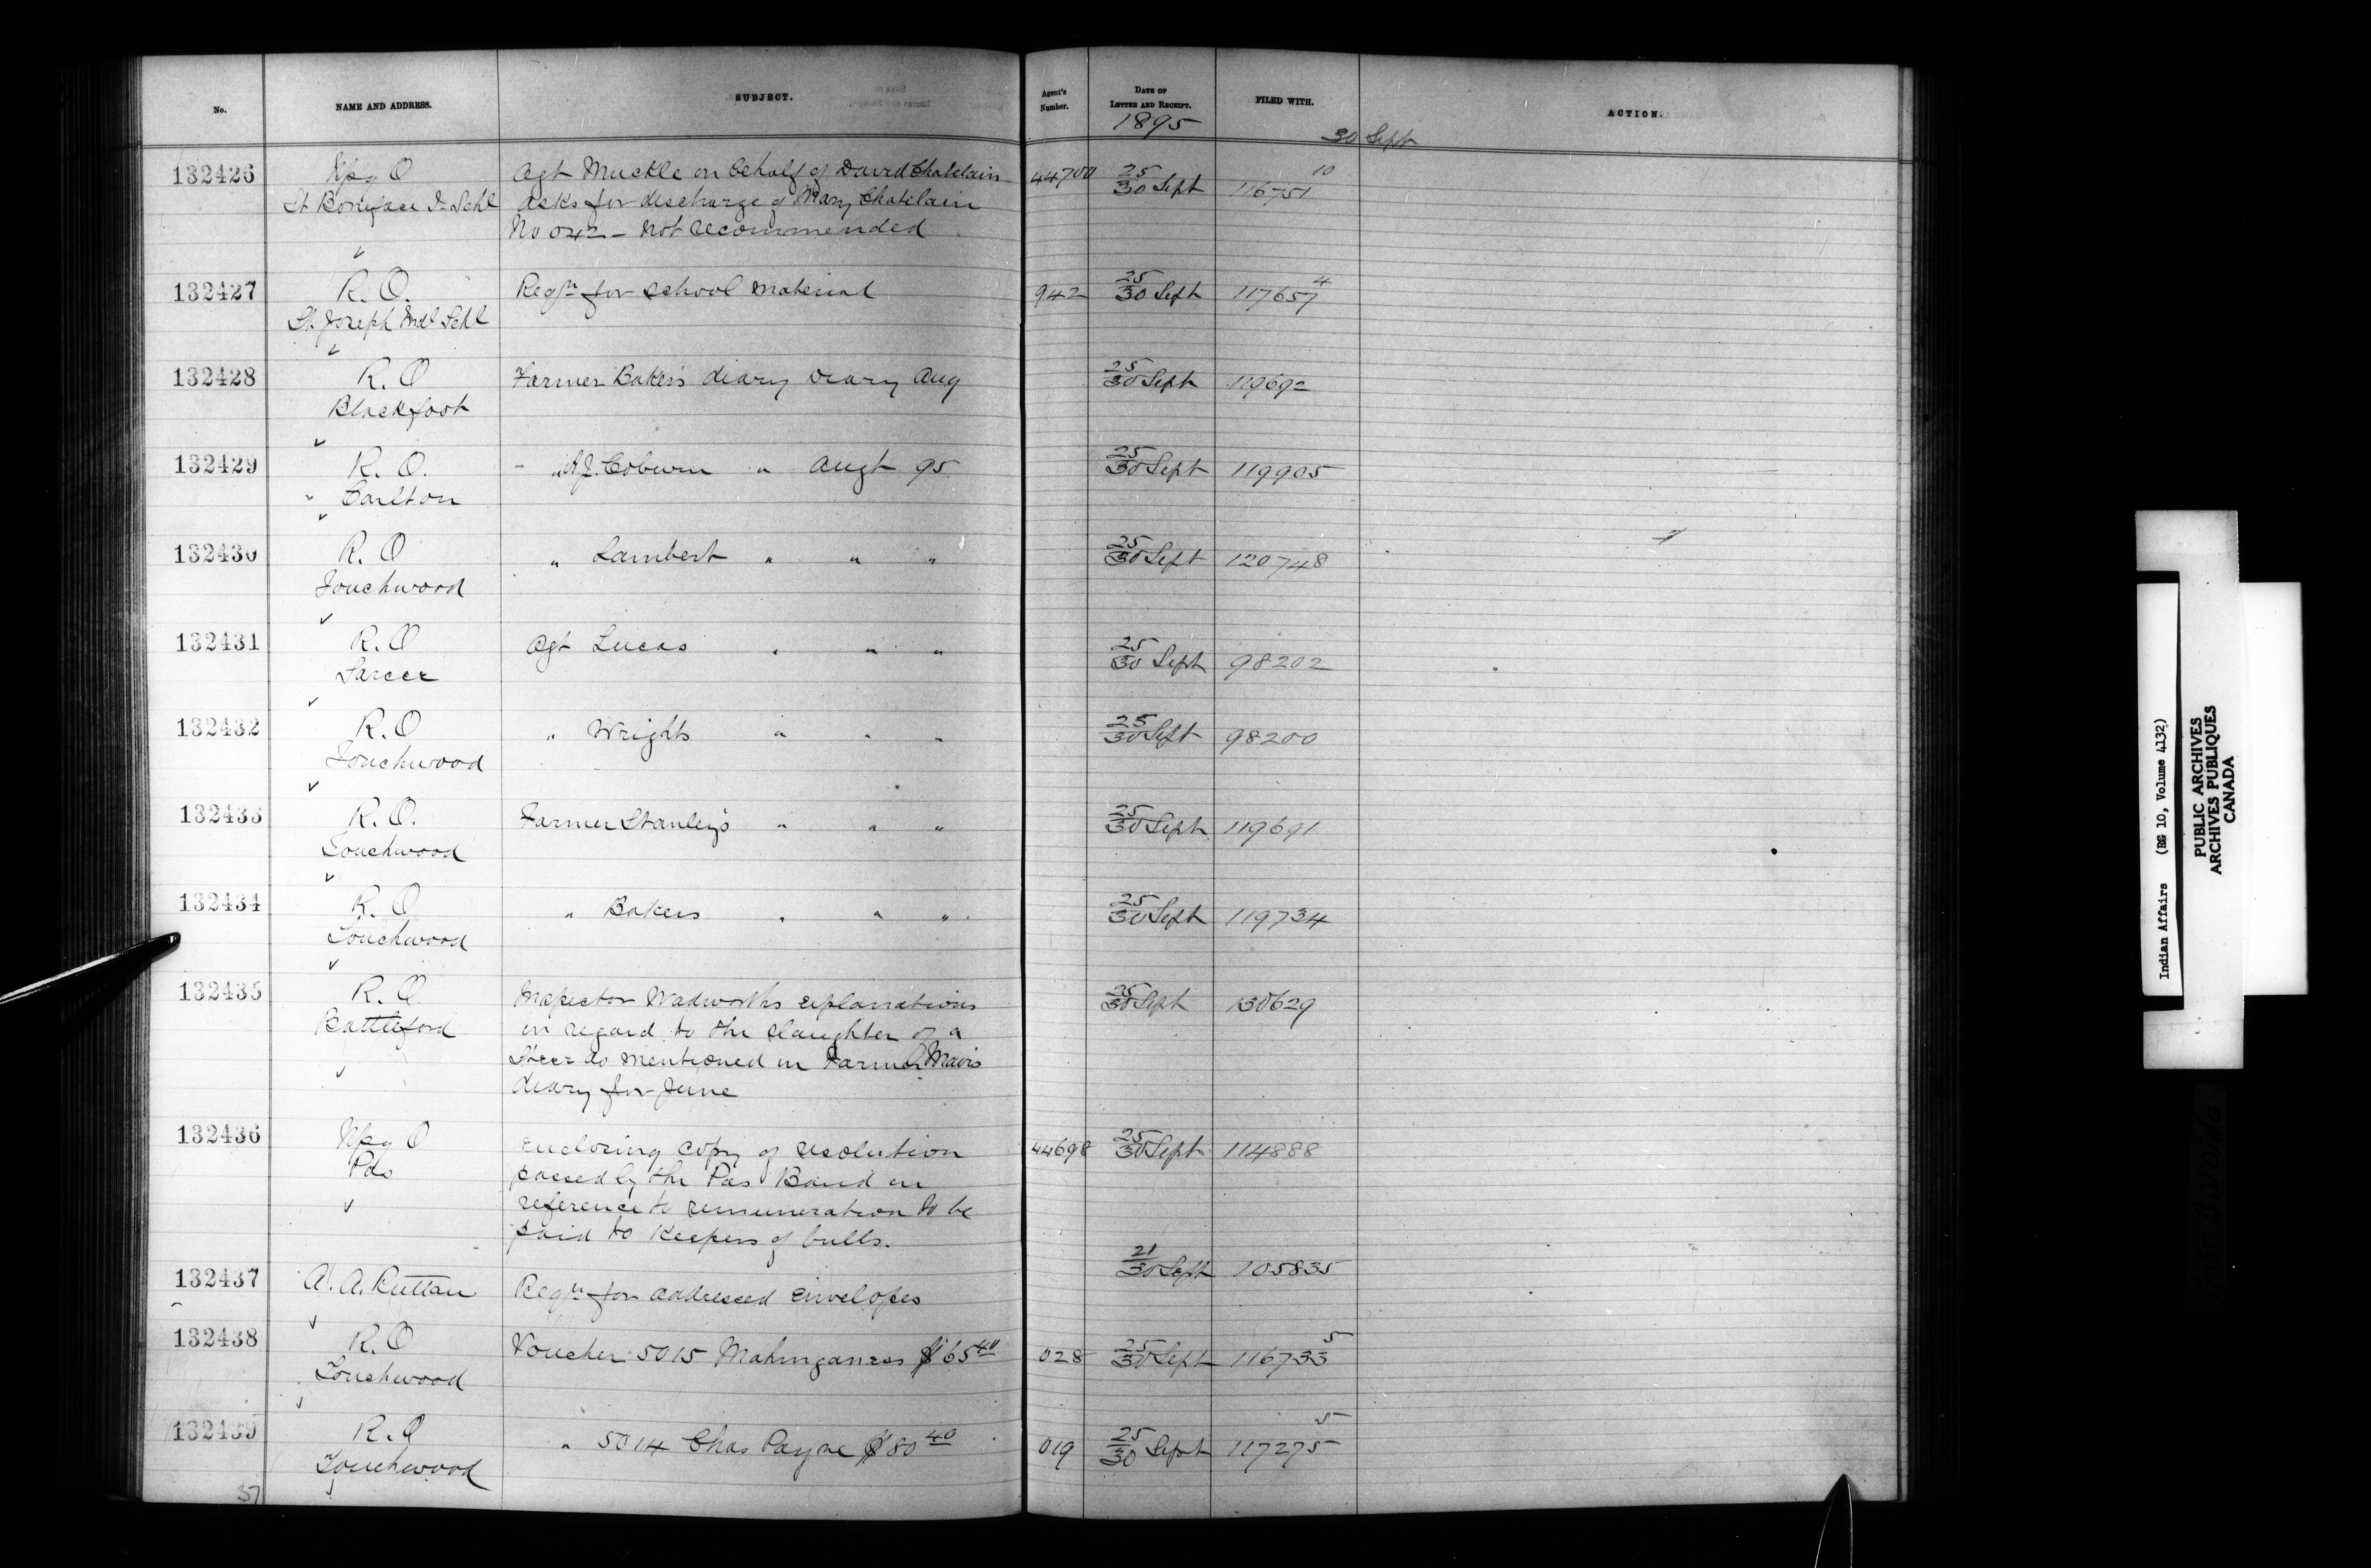 No. NAME AND ADDRESS. SUBJECT. Agent's Number. DATE OF LETTER AND RECEIPT. FILED WITH. ACTION.
1895
30 Sept
132426 Wpg O Agt Muckle on behalf of David Chatelain 44700 25/30 Sept 116751 10
St Boniface I- Schl asks for discharge of Mary Chatelain
No 042 - not recommended
132427 R. O. Reqn for school material 942 25/30 Sept 117657 4
St. Joseph Indl Schl
132428 R. O Farmer Baker's diary diary Aug 25/30 Sept 119692
Blackfoot
132429 R. O. " A.J. Coburn " Augt 95 25/30 Sept 119905
" Carlton
132430 R. O " Lambert " " " 25/30 Sept 120748
Touchwood
132431 R. O Agt Lucas " " " 25/30 Sept 98202
Sarcee
132432 R. O " Wrights " " " 25/30 Sept 98200
Touchwood
132433 R. O. Farmer Stanley's " " " 25/30 Sept 119691
Touchwood
132434 R. O " Bakers " " " 25/30 Sept 119734
Touchwood
132435 R. O Inspector Wadworths explanations 25/30 Sept 130629
Battleford in regard to the slaughter of a
Steer as mentioned in Farmer
diary for June
132436 Wpg O Enclosing copy of resolution 44698 25/30 Sept 114888
Pas passed by the Pas Band in
reference to remuneration to be
paid to Keepers of bulls.
132437 A. A. Ruttan Reqn for addressed Envelopes 21/30 Sept 105835
132438 R. O Voucher 5015 $65 40 028 25/30 Sept 116733 5
Touchwood
132439 R. O " 5014 Chas Payne $80 40 019 25/30 Sept 117275 5
Touchwood
37
Indian Affairs (RG 10, Volume 4132)
PUBLIC ARCHIVES
ARCHIVES PUBLIQUES
CANADA